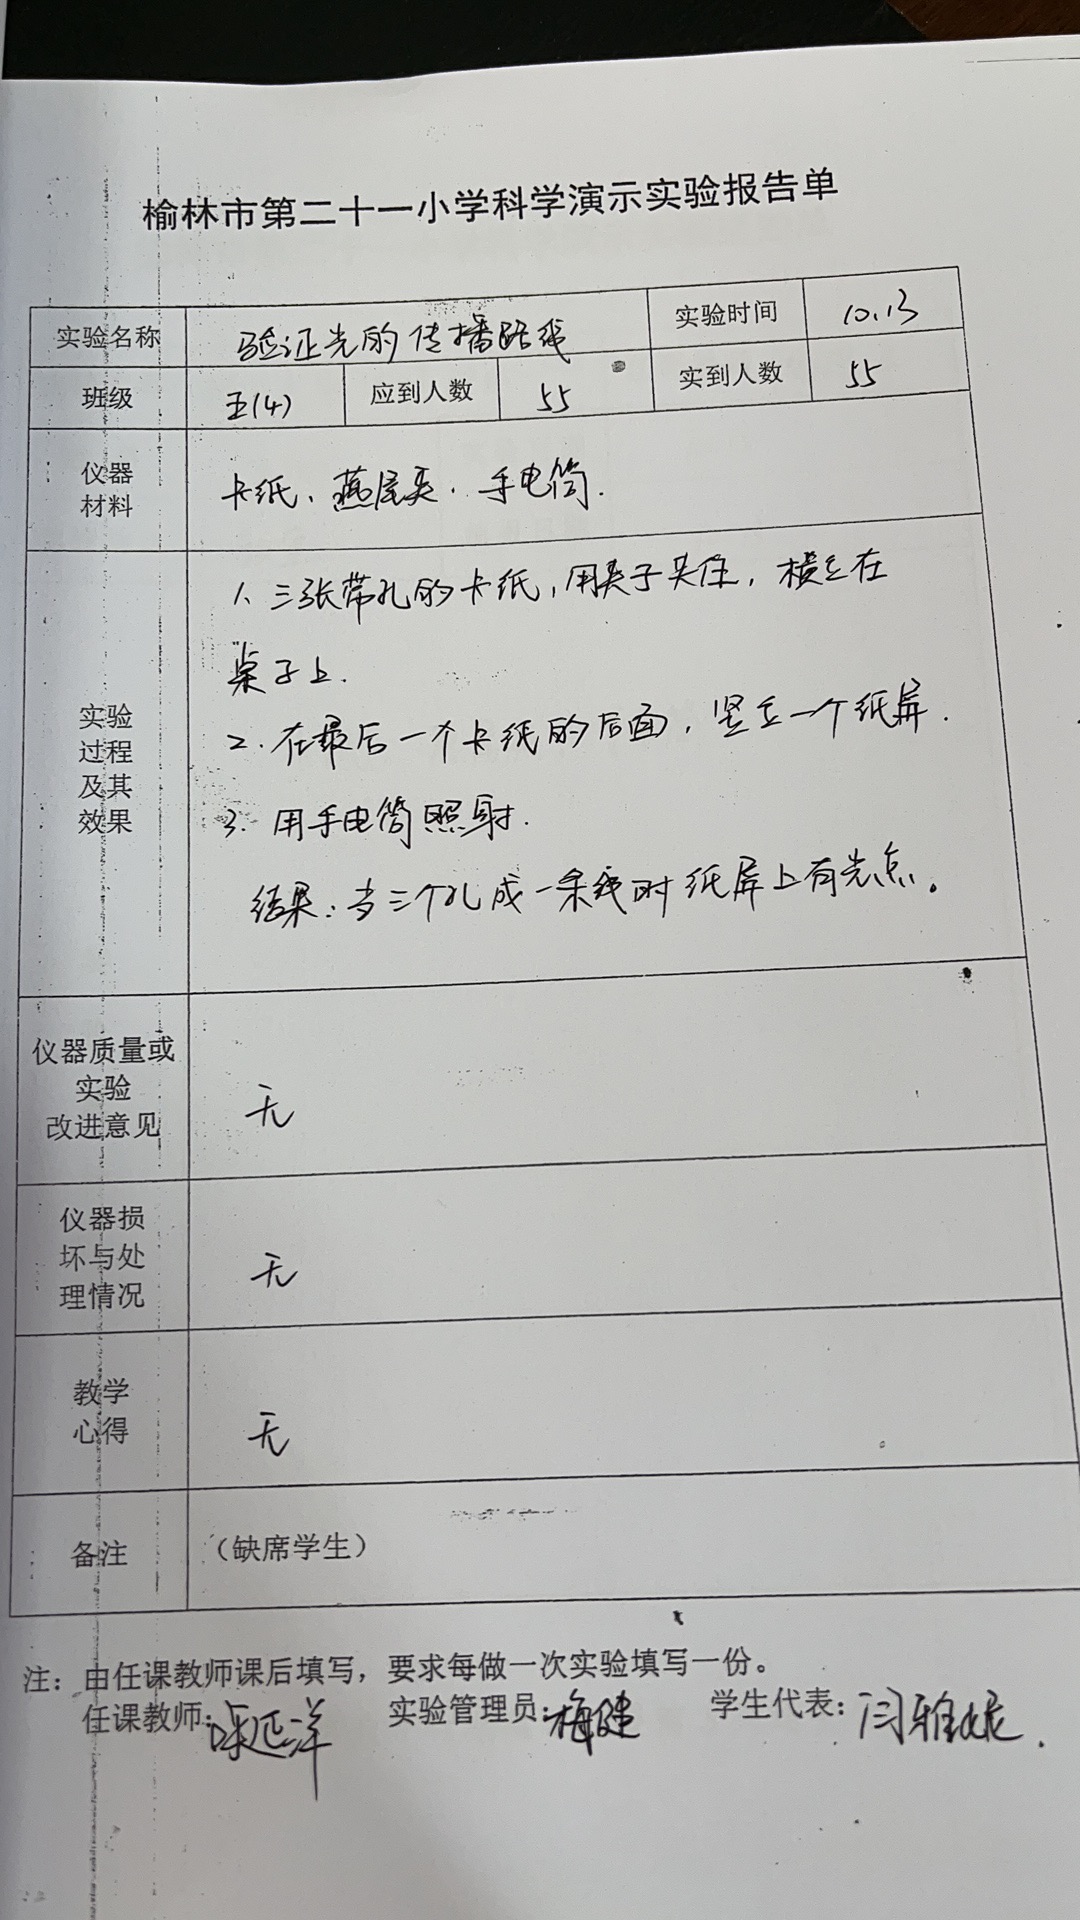 榆林市第二十一小学科学演示实验报告单
实验名称 验证光的传播路线 实验时间 10.13
班级 五(4) 应到人数 55 实到人数 55
仪器
材料
卡纸、燕尾夹、手电筒.
实验
过程
及其
效果
1、三张带孔的卡纸,用夹子夹住,横立在
桌子上.
2.在最后一个卡纸的后面,竖立一个纸屏.
3.用手电筒照射.
结果:当三个孔成一条线时纸屏上有光点。
仪器质量或
实验
改进意见
无
仪器损
坏与处
理情况
无
教学
心得
无
备注 (缺席学生)
注:由任课教师课后填写,要求每做一次实验填写一份。
任课教师: 延洋 实验管理员:梅健 学生代表:闫雅妮.